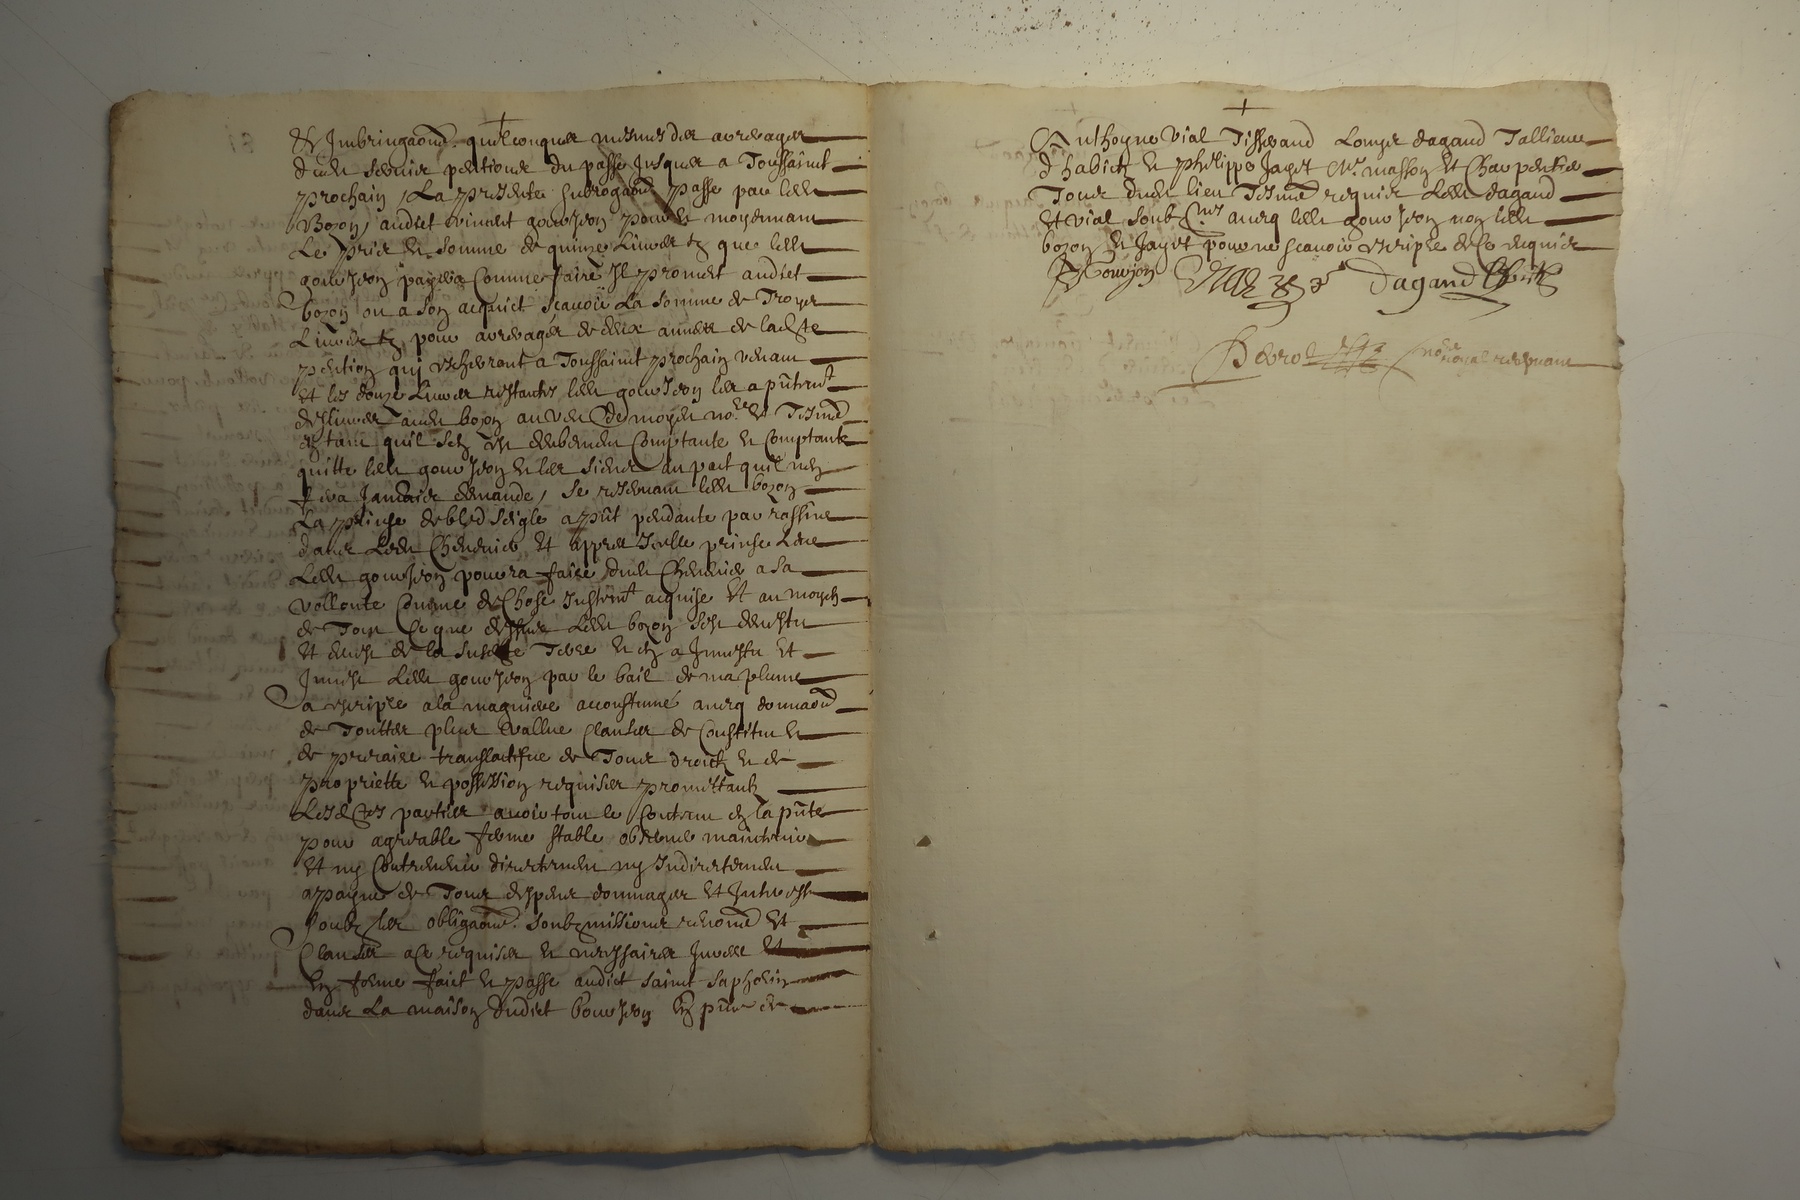 Et Imbringaōns quelconques mesmes des arrerages
dud servis pentions du passe jusques a Toussainct
prochain / La presente subrogaōn passe par led
Bozon audict vincent goujon pour et moyennant
Le prix et somme de quinze Livres tz que led
goujon payera comme faire Il promect audict
bozon ou a son acquict scavoir La somme de Troys
Livres tz pour arrerages de deux annees de lad
pention qui escherront a Toussainct prochain venant
et les douze Livres restantes led goujon les a pntemt
delivres aud bozon au veu de moyd nore et Tesmes
et tant quil sen est
quitte led goujon et les siens au pact quil nen
sera Jamais demande / se reservant led bozon
La prinse de bled seigle a pnt pendante par rassine
dans Led Cheneviere et appres Icelle prinse Levee
Led goujon pourra faire dud Cheneviere a sa
vollonte comme de chose Justemt acquise et au moyen
de Tout Ce que dessus Led bozon sest devestu
et de la susdte Terre et en a Investu et
Led goujon par le bail de ma plume
a escripre a la magniere accoustumé avecq donnaōn
de Touttes plus vallue Clauses de Constitue et
de precaire translactifve de Tous droictz et de
propriette et possession requises promettantz
Lesdtes parties avoir tout le Contenu en la pnte
pour agreable ferme stable observer maintenir
et ny Contrevenir directement ny Indirectement
a payne de Tous despens dommages et Interestz
soubz les obligaōns soubzmissions renonc et
Clauses a Ce requises et necessaires et
En forme faict et passe audict sainct saphorin
dans La maison dudict goujon En pnce de
Anthoyne vial Tisserand Louys dagand Tallieur
d habictz et philippe Jaget Mre masson et Charpentier
Tous dud lieu Tesmes requis Led dagand
et vial soubznes avecq led goujon non led
bozon et Jaget pour ne scavoir escripre de Ce requis
Goujon Vial dagand
nore royal recepvant